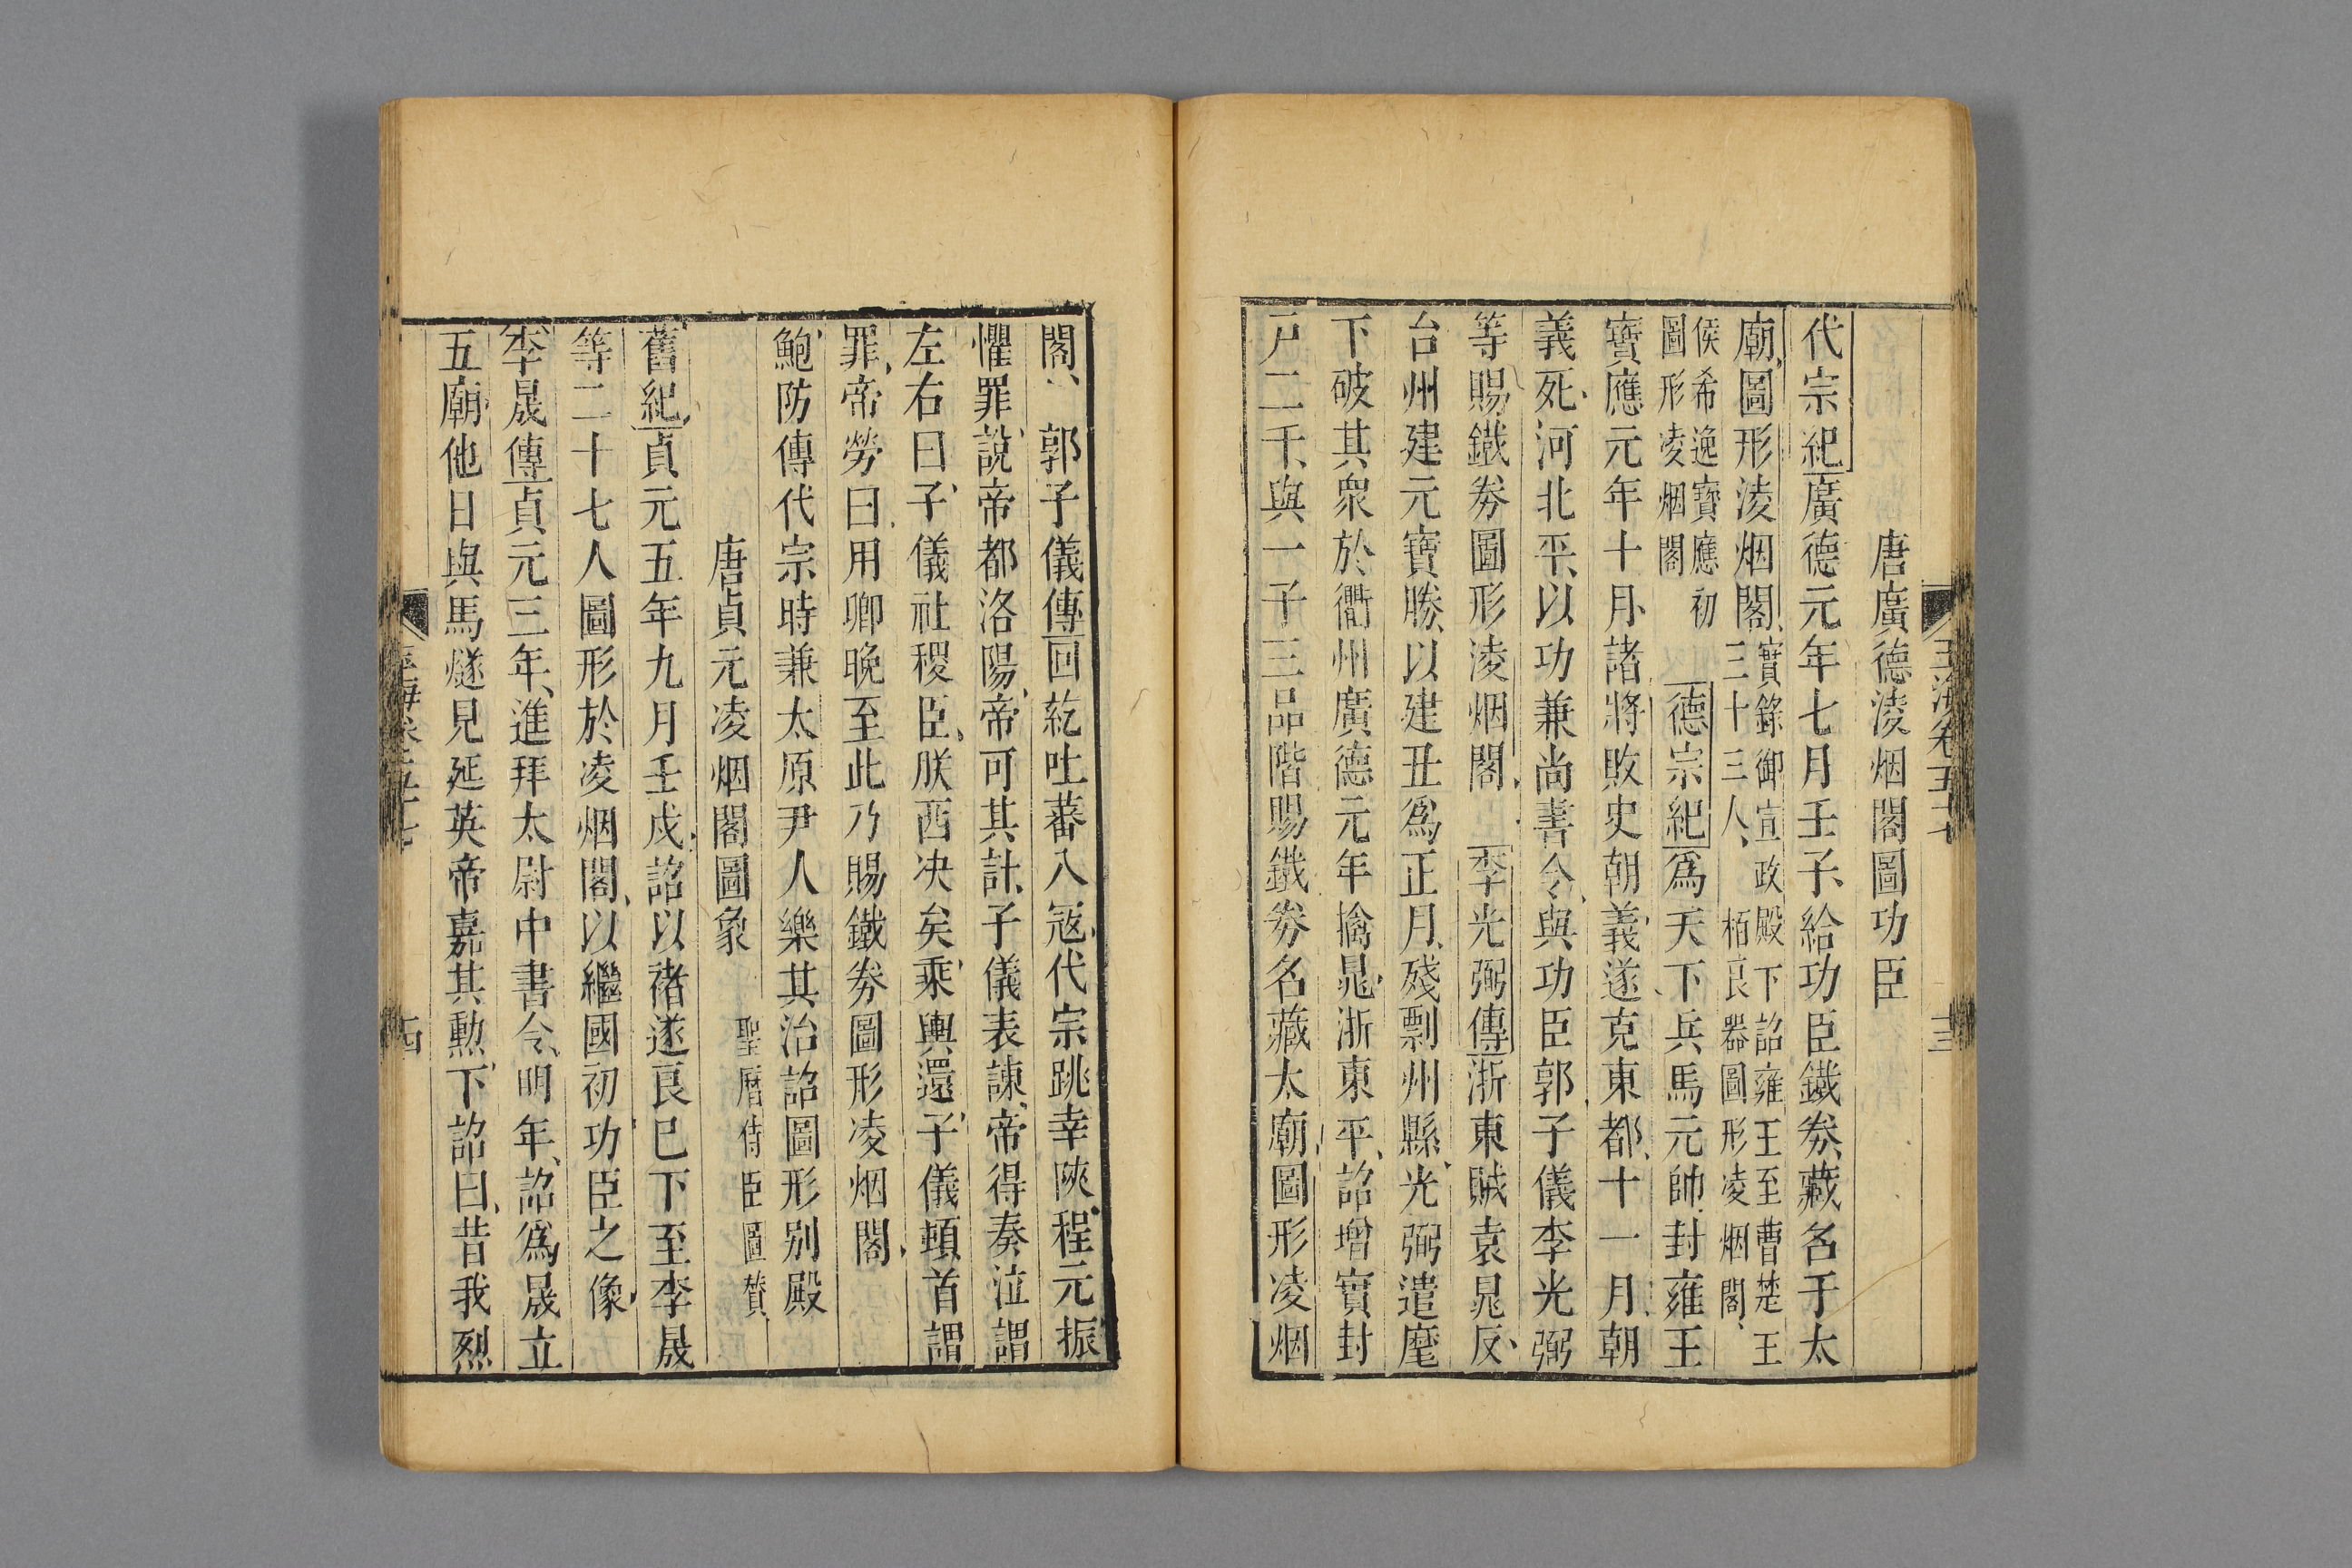 唐廣德淩烟閣圖功臣
代宗紀廣德元年七月壬子、給功臣鐵券、藏名于太
廟、圖形淩烟閣、實錄御宣政殿下詔雍王至曹楚王
三十三人、栢良器圖形凌烟閣、
侯希逸寶應初
圖形凌烟閣
德宗紀爲天下兵馬元帥、封雍王
寶應元年十月、諸將敗史朝義、遂克東都、十一月、朝
義死、河北平、以功兼尚書令、與功臣郭子儀李光弼
等賜鐵券圖形淩烟閣、李光弼傳浙東賊袁晁反、
台州建元寶勝、以建丑爲正月、殘剽州縣、光弼遣麾
下破其衆於衢州廣德元年擒晁、浙東平、詔增實封
戸二千、與一子三品階賜鐵券名藏太廟、圖形凌烟
閣、郭子儀傳回紇吐蕃入寇、代宗跳幸陜、程元振
懼罪、說帝都洛陽、帝可其計、子儀表諫、帝得奏泣謂
左右曰、子儀社稷臣、朕西决矣、乘輿還、子儀頓首謂
罪、帝勞曰、用卿晚至此、乃賜鐵券圖形凌烟閣、
鮑防傳代宗時兼太原尹人樂其治詔圖形别殿
唐貞元凌烟閣圖象
聖曆侍臣圖贊、
舊紀貞元五年九月壬戌、詔以禇遂良巳下至李晟
等二十七人圖形於凌烟閣、以繼國初功臣之像、
李晟傳貞元三年、進拜太尉中書令、明年、詔爲晟立
五廟、他日與馬燧見延英帝嘉其勲、下詔曰、昔我烈
玉海卷五十七
十三